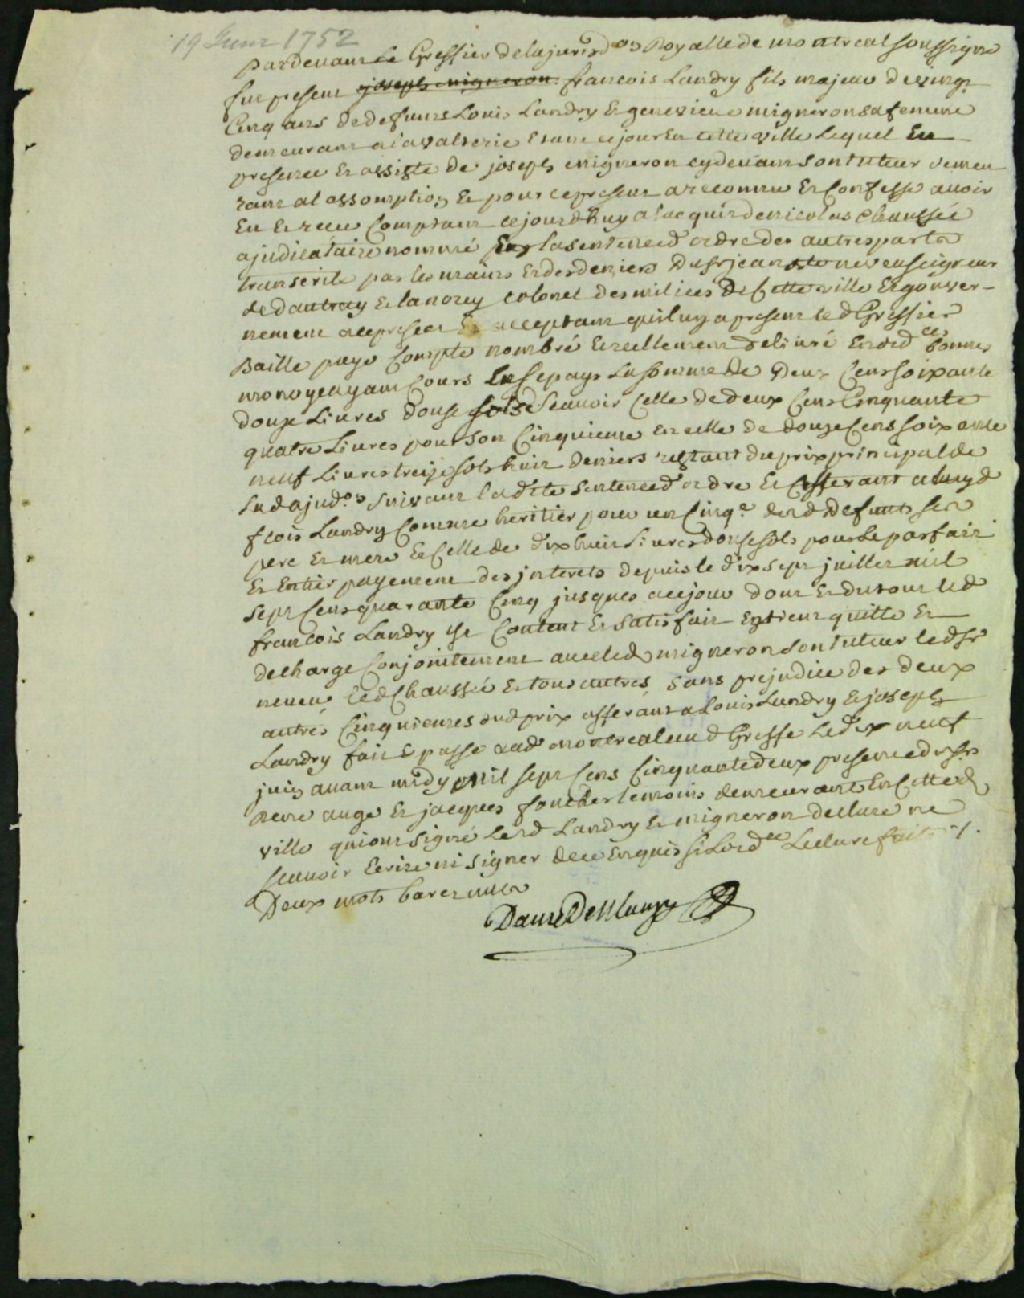 19 Juin 1752
Pardevant Le Greffier de la jurisd.on Royalle de montreal soussigné
fut present joseph migneron francois Landry fils majeur de vingt
Cinq ans de deffunts Louis Landry Et genevieve migneron sa femme
demeurant a lavalterie Etant ce jour En cette ville Lequel En
presence Et assisté de joseph migneron cydevant son tuteur demeu
rant a lassomption Et pour ce present a reconnu Et Confessé avoir
Eu Et receu Comptant cejourdhuy a lacquit de nicolas Chaussée
ajudicataire nommé par la sentence dordre des autres parts
transcrite par les mains Et des deniers du Sr jean neveu seigneur
de dautray Et lanoray colonel des milices de Cette ville Et gouver-
nement a ce present Et acceptant qui luy a present led Greffier
Baillé payé Compté nombré Et reellement delivré En bonnes
monoye ayant Cours En ce pays La somme de deux Cent soixante
douze Livres douze sols Scavoir Celle de deux Cens Cinquante
quatre Livres pour son Cinquieme En celle de douze Cens soixante
neuf Livres treize sols huit deniers restant du prix principal de
lad ajud.on suivant lad.te sentence dordre Et afferant aud
f.cois Landry Comme heritier pour un Cinq.e desd deffunts ses
pere Et mere Et Celle de dix huit Livres douze sols pour Le parfait
Et Entier payement des jnterets depuis le dix sept juillet mil
sept Cens quarante Cinq jusques a ce jour dont Et du tout led
francois Landry se Content Et satisfait En tient quitte Et
decharge Conjointement avec led migneron son tuteur led Sr
neveu led Chaussée Et tous autres sans prejudice des deux
autres Cinquiemes dud prix afferant a Louis Landry Et joseph
Landry fait Et passé aud montreal aud Greffe Le dix neuf
juin avant midy mil sept Cens Cinquante deux presence des Srs
augé Et jacques foucher temoins demeurant En Cette d
ville qui ont signé Lesd Landry Et migneron declaré ne
scavoir Ecrire ni signer de ce Enquis Lecture faite ./.
Deux mots barez nuls
Danré DeBlanzy